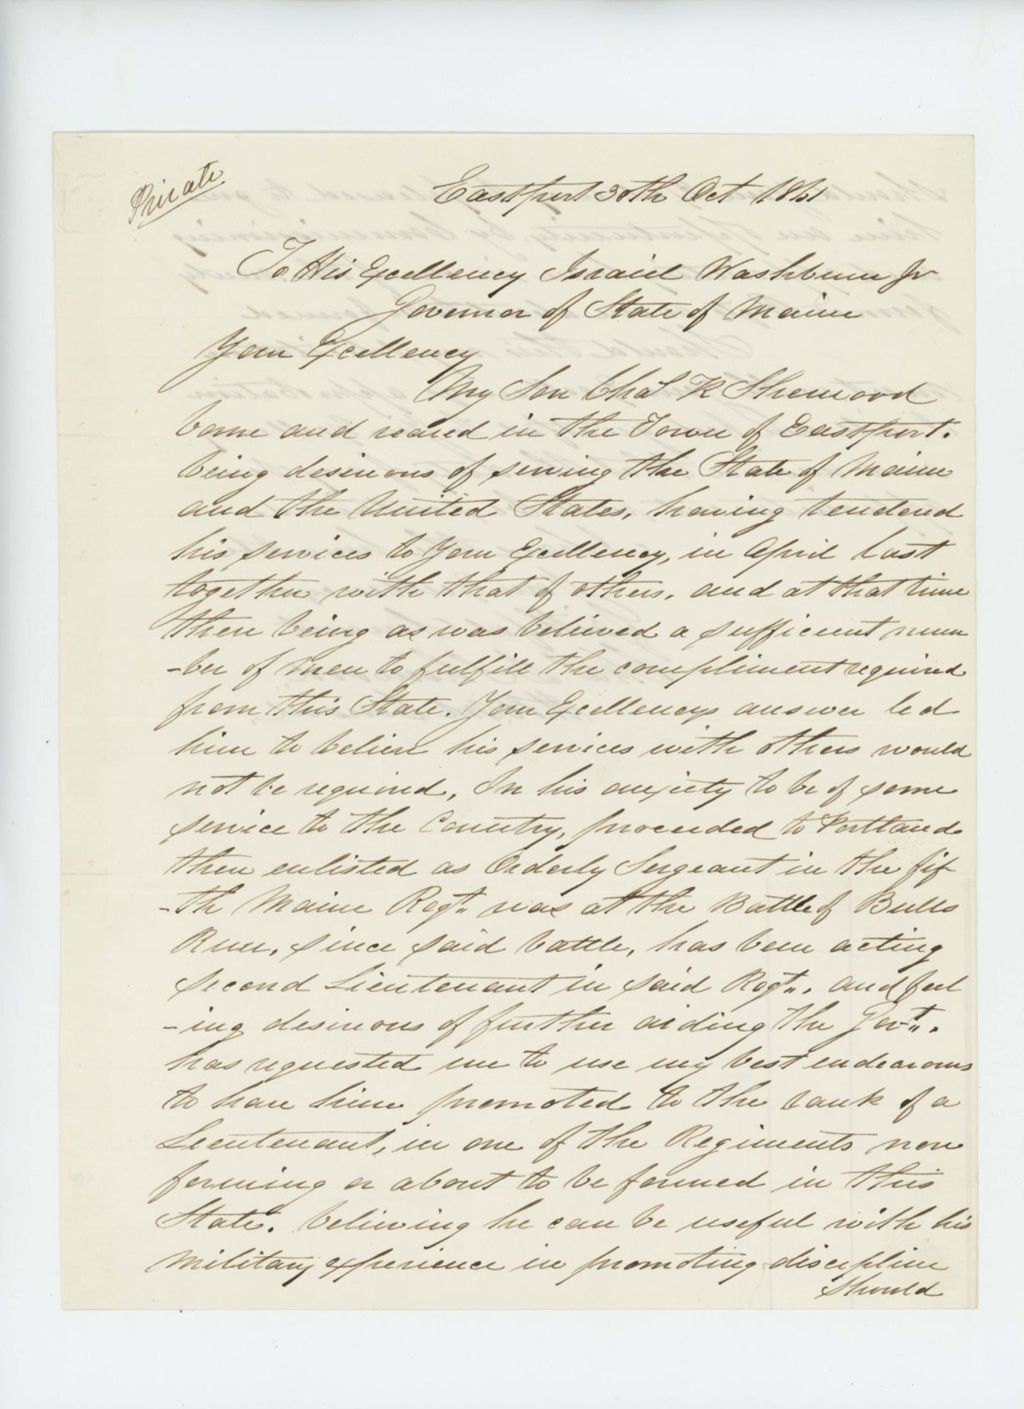 Private
Eastport 30th Oct 1861
To His Excellency Israiel Washburn Jr
Governor of State of Maine
Your Excellency
My Son Chas K Sherwood
borne and reared in the Town of Eastport.
being desireous of serving the State of Maine
and the United States, having tendered
his services to Your Excellency, in April last
together with that of others, and at that time
there being as was believed a sufficient num
-ber of men to fulfill the compliment required
from this State. Your Excellencys answer led
him to believe his services with others would
not be required, In his anxiety to be of some
service to the Country, proceeded to Portland
then enlisted as Orderly Sergeant in the fif
-th Maine Regt. was at the Battle of Bulls
Run, since said battle, has been acting
second Lieutenant in said Regt., and feel
-ing desireous of further aiding the Govt.,
has requested me to use my best endeavours
to have him promoted to the rank of a
Lieutenant, in one of the Regiments now
forming or about to be formed in this
State. believing he can be useful with his
military experience in promoting discipline
Should